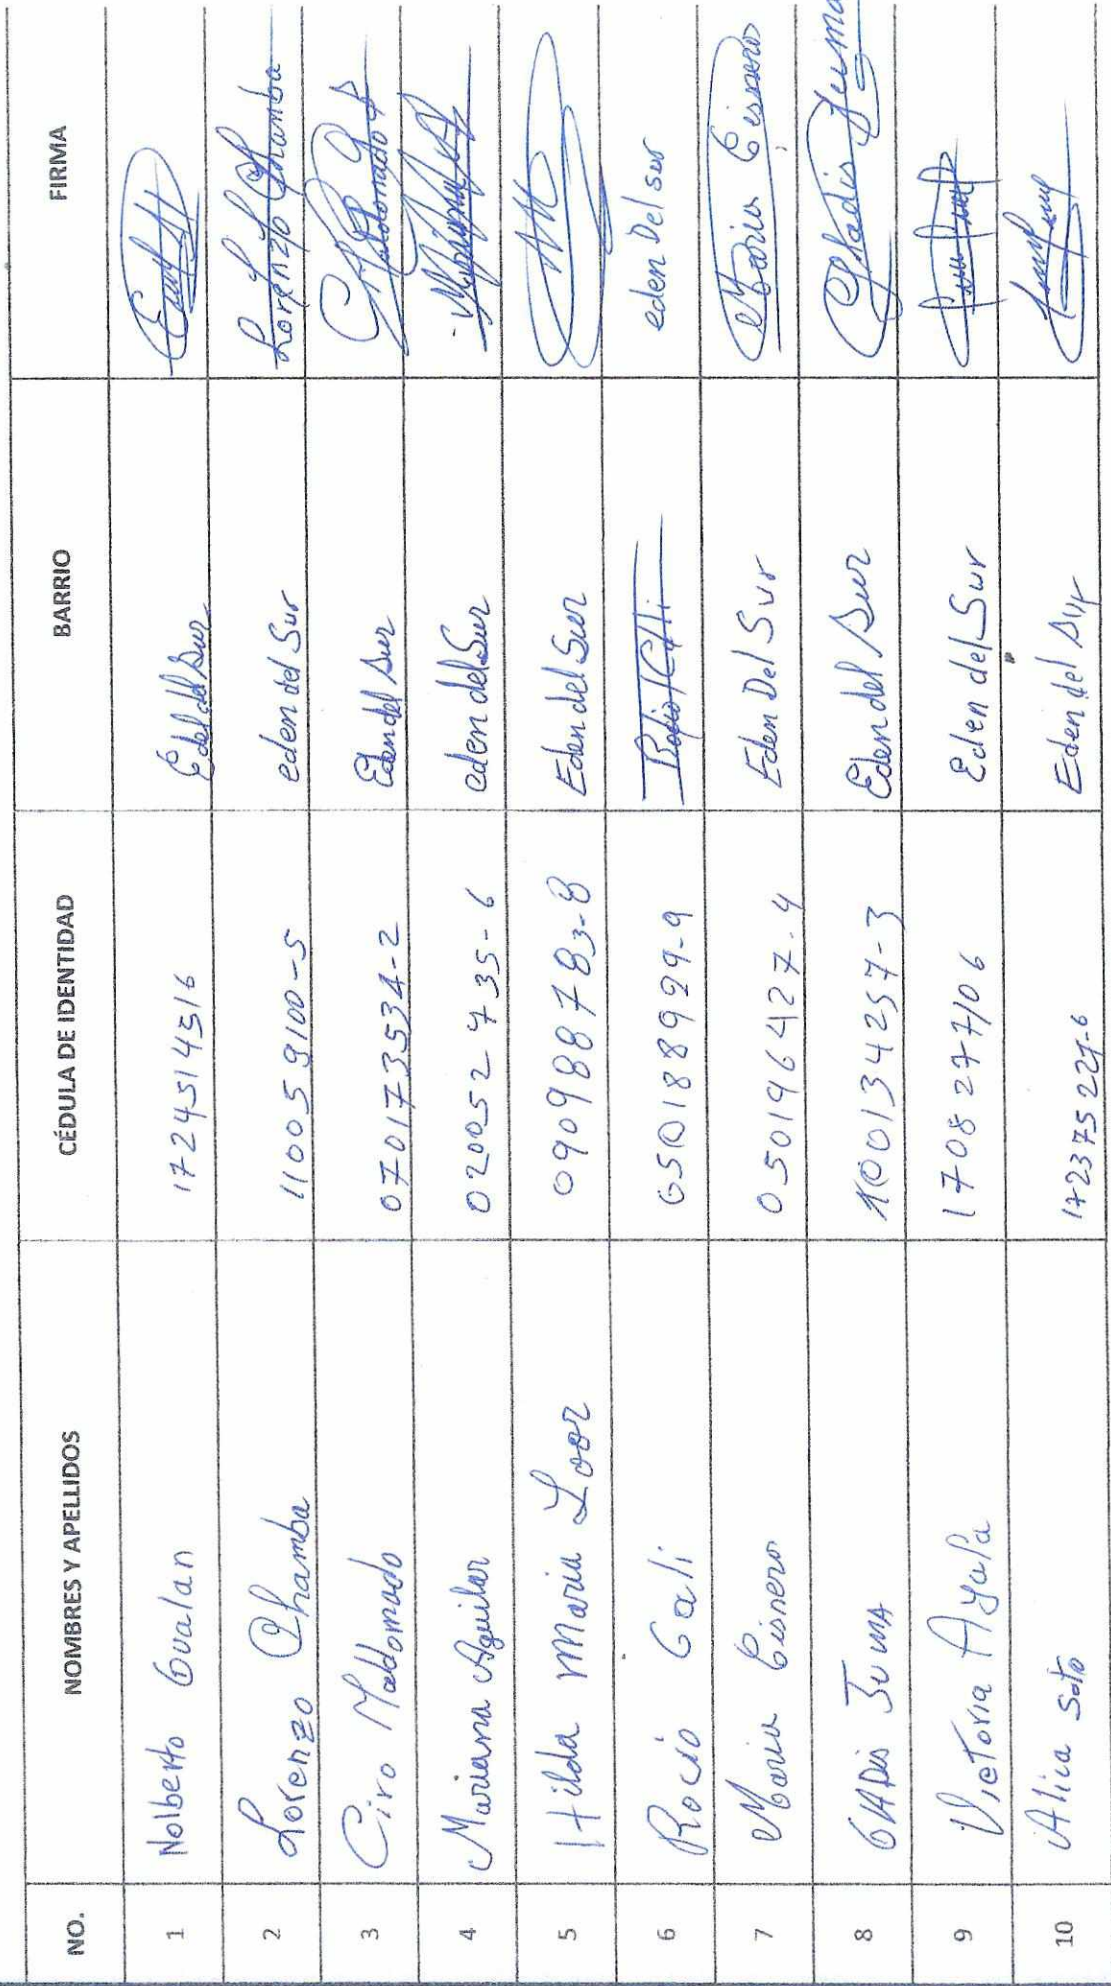 NO. NOMBRES Y APELLIDOS CÉDULA DE IDENTIDAD BARRIO FIRMA
1 Nolberto Gualan 1724514516 Edel del Sur
2 Lorenzo Chamba 110059100-5 eden del Sur Lorenzo Chamba
3 Ciro Maldonado 070173534-2 Eden del Sur CMaldonado
4 Mariana Aguilar 020052735-6 eden del Sur
5 Hilda Maria Loor 090988783-8 Eden del Sur
6 Rocio Cali 050188929-9 Rocio Cali eden Del sur
7 Maria Cisnero 050196427-4 Eden Del Sur Maria Cisnero
8 GLADIS JUMA 100134257-3 Eden del Sur Gladis Juma
9 Victoria Ayala 1708277106 Eden del Sur
10 Alica Soto 172375227-6 Eden del Sur